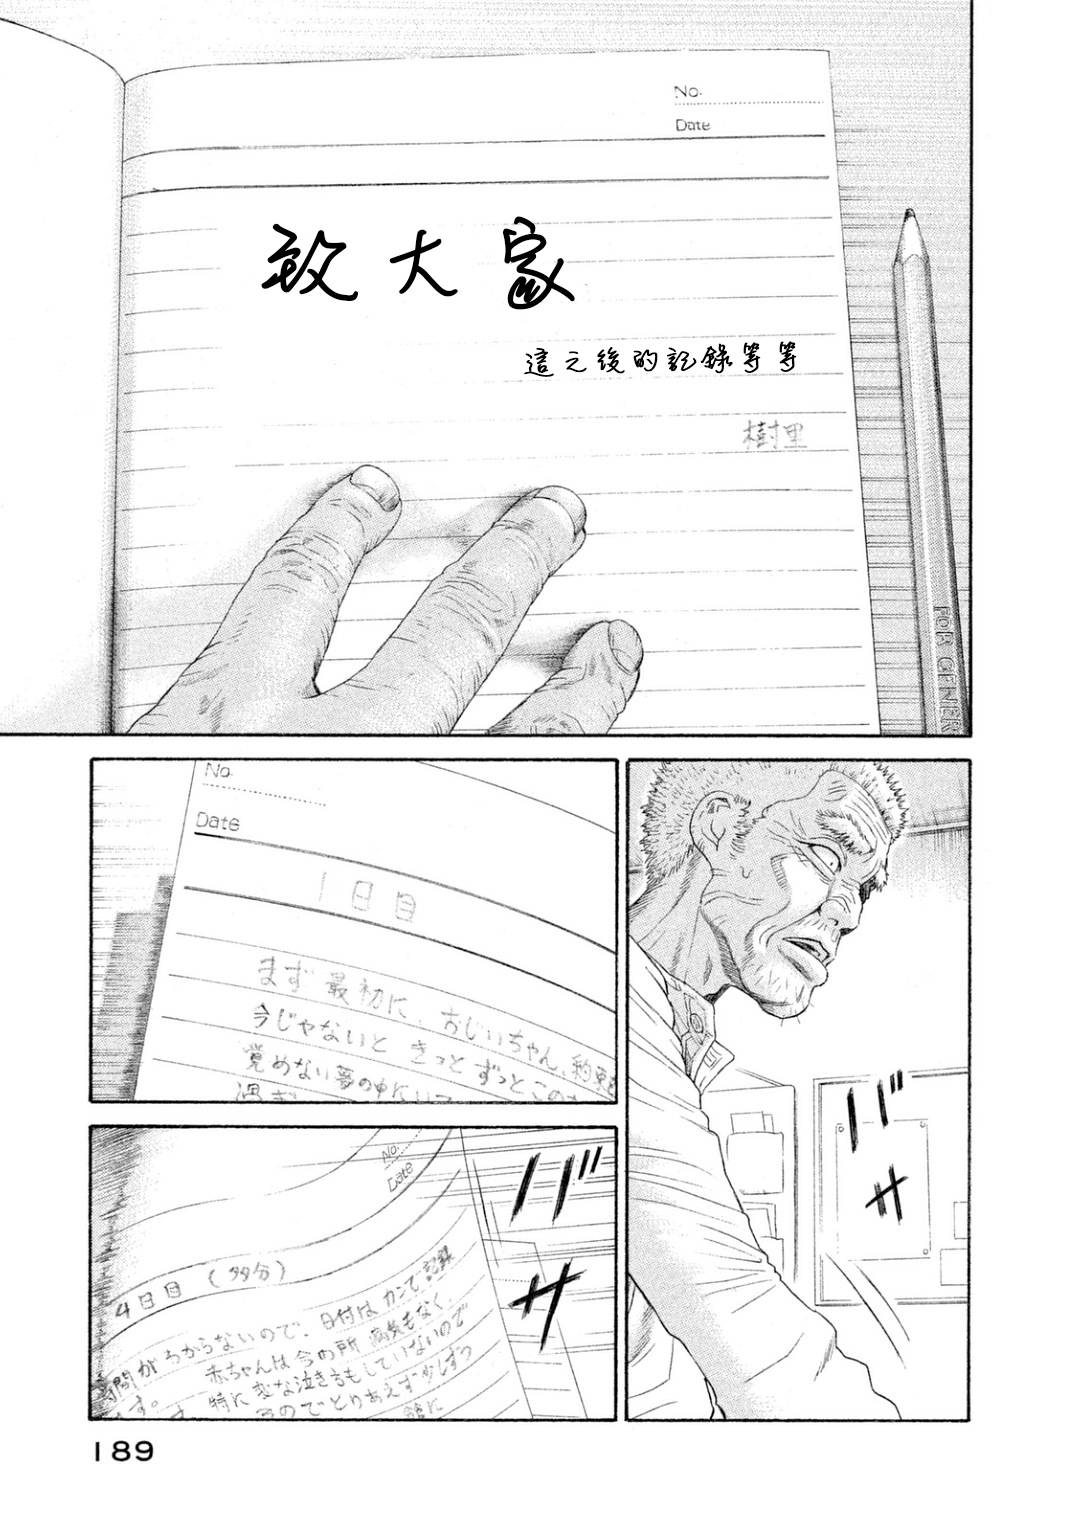 No.
Date
致大家
這之後的記錄等等
樹里
FOR GENER
バ
サ
No.
Date
1日目
まず最初に、おじいちゃん、約束
今じゃないと きっと ずっとこの
覚めない夢の中にいて
過ぎ
バ
サ
No.
Date
4日目 (多分)
時間がわからないので、日付はカンで記録
す。 赤ちゃんは今の所 病気もなく、
特に変な泣き方もしていないので
るのでとりあえず少しずつ
館に
189